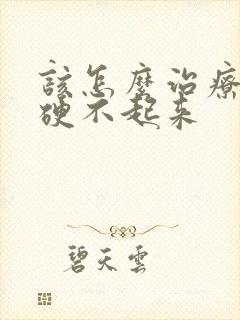 該怎麼治療
硬不起来
碧天雲